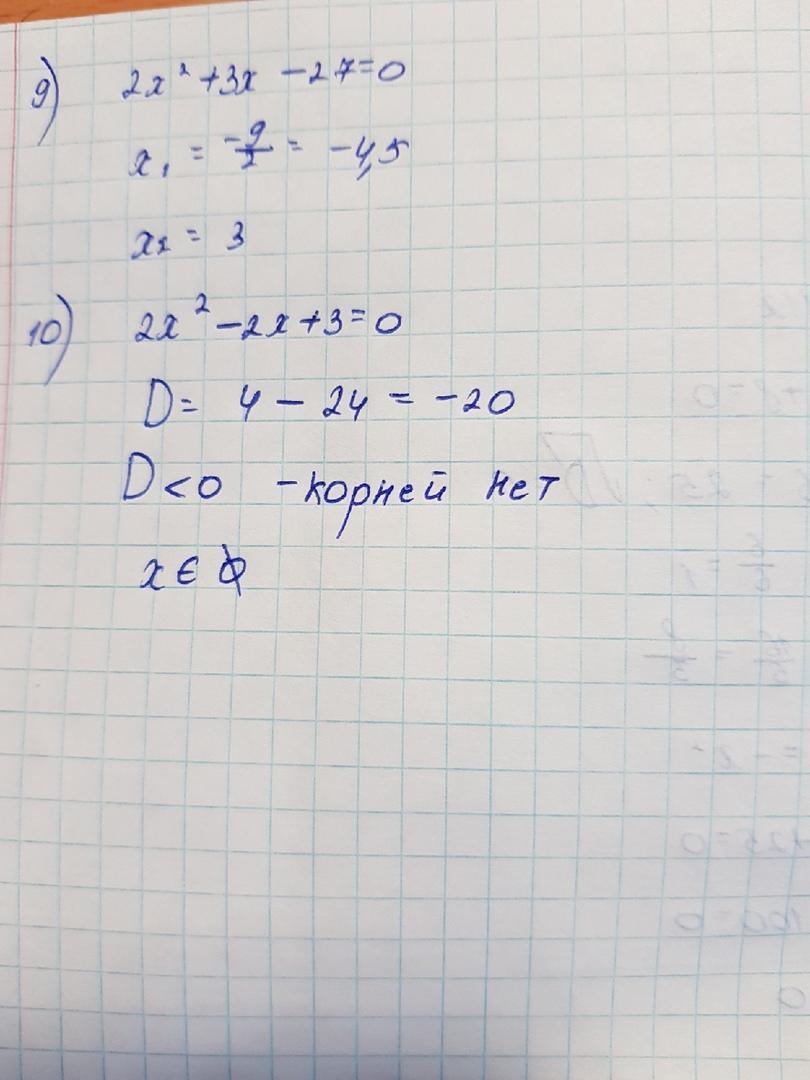 9) 2x² + 3x - 27 = 0
x₁ = -9/2 = -4,5
x₂ = 3
10) 2x² - 2x + 3 = 0
D = 4 - 24 = -20
D < 0 - корней нет
x ∈ ∅